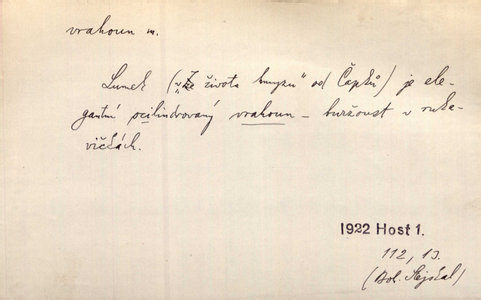 vrahoun m.
Lumek („Ze života hmyzu“ od Čapků) je ele-
gantní ocilindrovaný vrahoun – buržoust v ruka-
vičkách.
1922 Host 1.
112, 13.
(Boh.